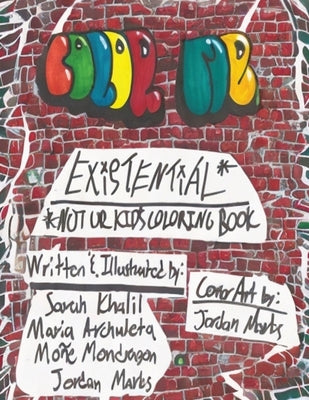 COLOR ME
EXiSTENTiAL*
*NOT UR KiDS COLORiNG BOOK
Written & Illustrated by:
Sarah Khalil
Maria Archuleta
Moñe Mondragon
Jordan Marks
Cover Art by:
Jordan Marks